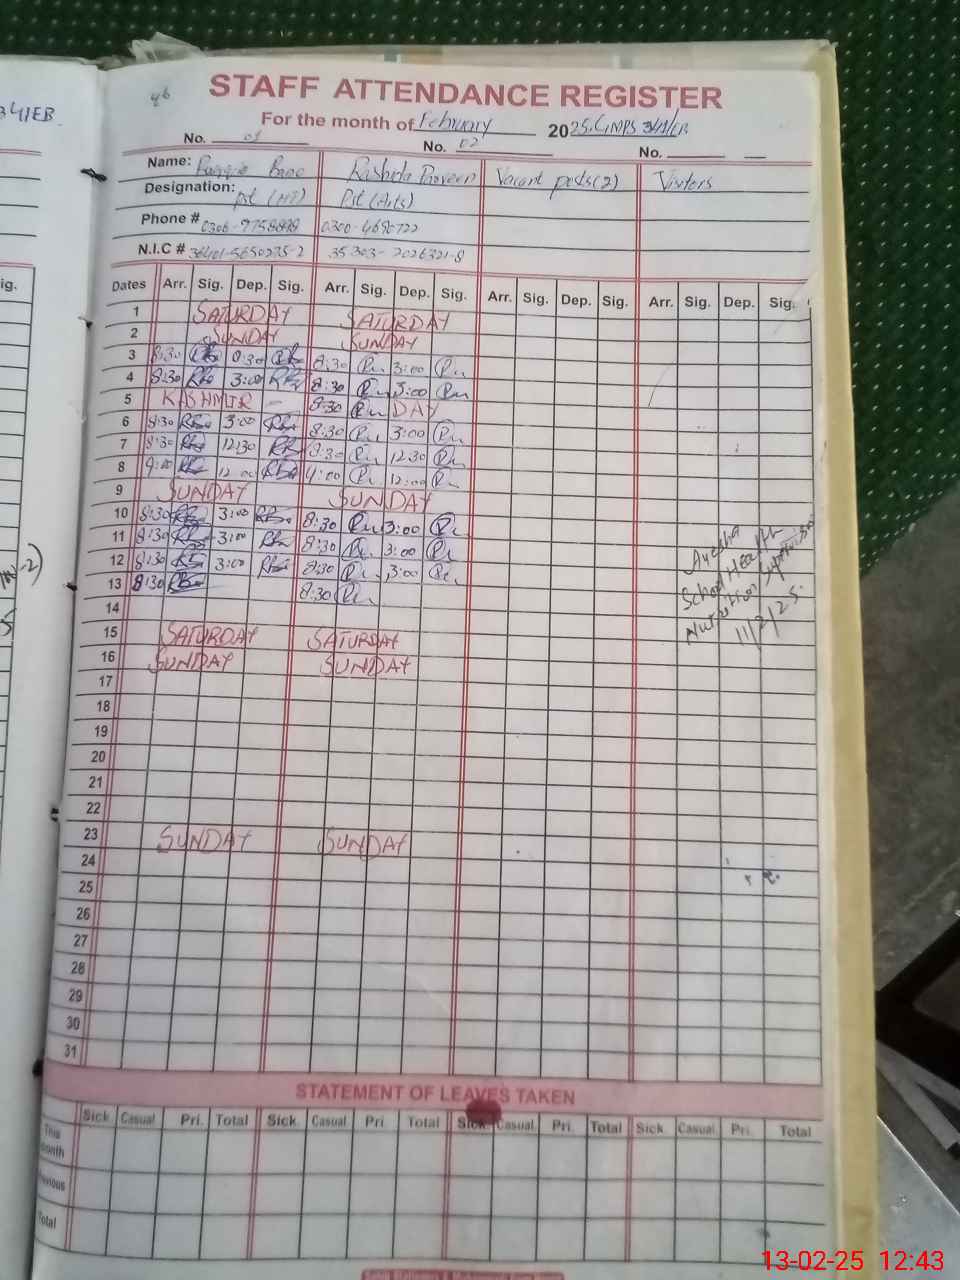 46
STAFF ATTENDANCE REGISTER
For the month of February 2025. GMPS 34/EB
No. 01 No. 02 No.
Name: Bano Rashida Parveen Vacant posts (2) Visitors
Designation: Pst (Arts)
Phone # 0300-4690722
N.I.C # 35303-2026321-8
Dates Arr. Sig. Dep. Sig. Arr. Sig. Dep. Sig. Arr. Sig. Dep. Sig. Arr. Sig. Dep. Sig.
1 SATURDAY SATURDAY
2 SUNDAY SUNDAY
3 8:30 8:30 3:00
4 8:30 3:00 8:30 3:00
5 KASHMIR - 8:30 DAY
6 8:30 3:00 8:30 3:00
7 8:30 12:30 8:30 12:30
8 12:00 12:00
9 SUNDAY SUNDAY
10 8:30 3:00 8:30 3:00
11 8:30 3:00 8:30 3:00
12 8:30 3:00 8:30 3:00
13 8:30 8:30
14
15 SATURDAY SATURDAY
16 SUNDAY SUNDAY
17
18
19
20
21
22
23 SUNDAY SUNDAY
24
25
26
27
28
29
30
31
Ayesha
School Health
Nutrition Supervisor
11/2/25.
STATEMENT OF LEAVES TAKEN
Sick. Casual Pri. Total Sick. Casual Pri. Total Sick. Casual. Pri. Total Sick. Casual. Pri. Total
This
Total
13-02-25 12:43